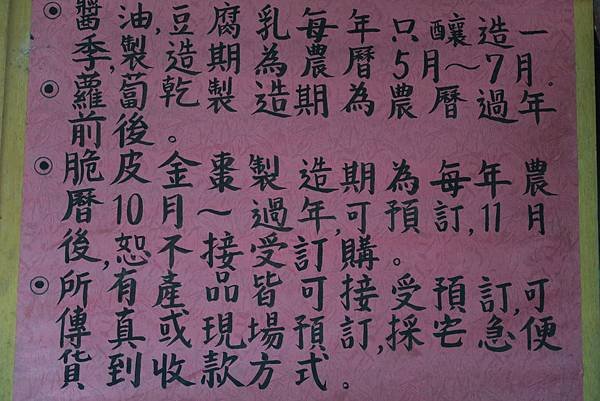 ◉醬油,豆腐乳每年只釀造一
季,製造期為農曆5月～7月.
◉蘿蔔乾製造期為農曆過年
前後。
◉脆皮金棗製造期為每年農
曆10月～過年,可預訂,11月
後,恕不接受訂購。
◉所有產品皆可接受預訂,可
傳真或現場預訂,採宅急便
貨到收款方式。